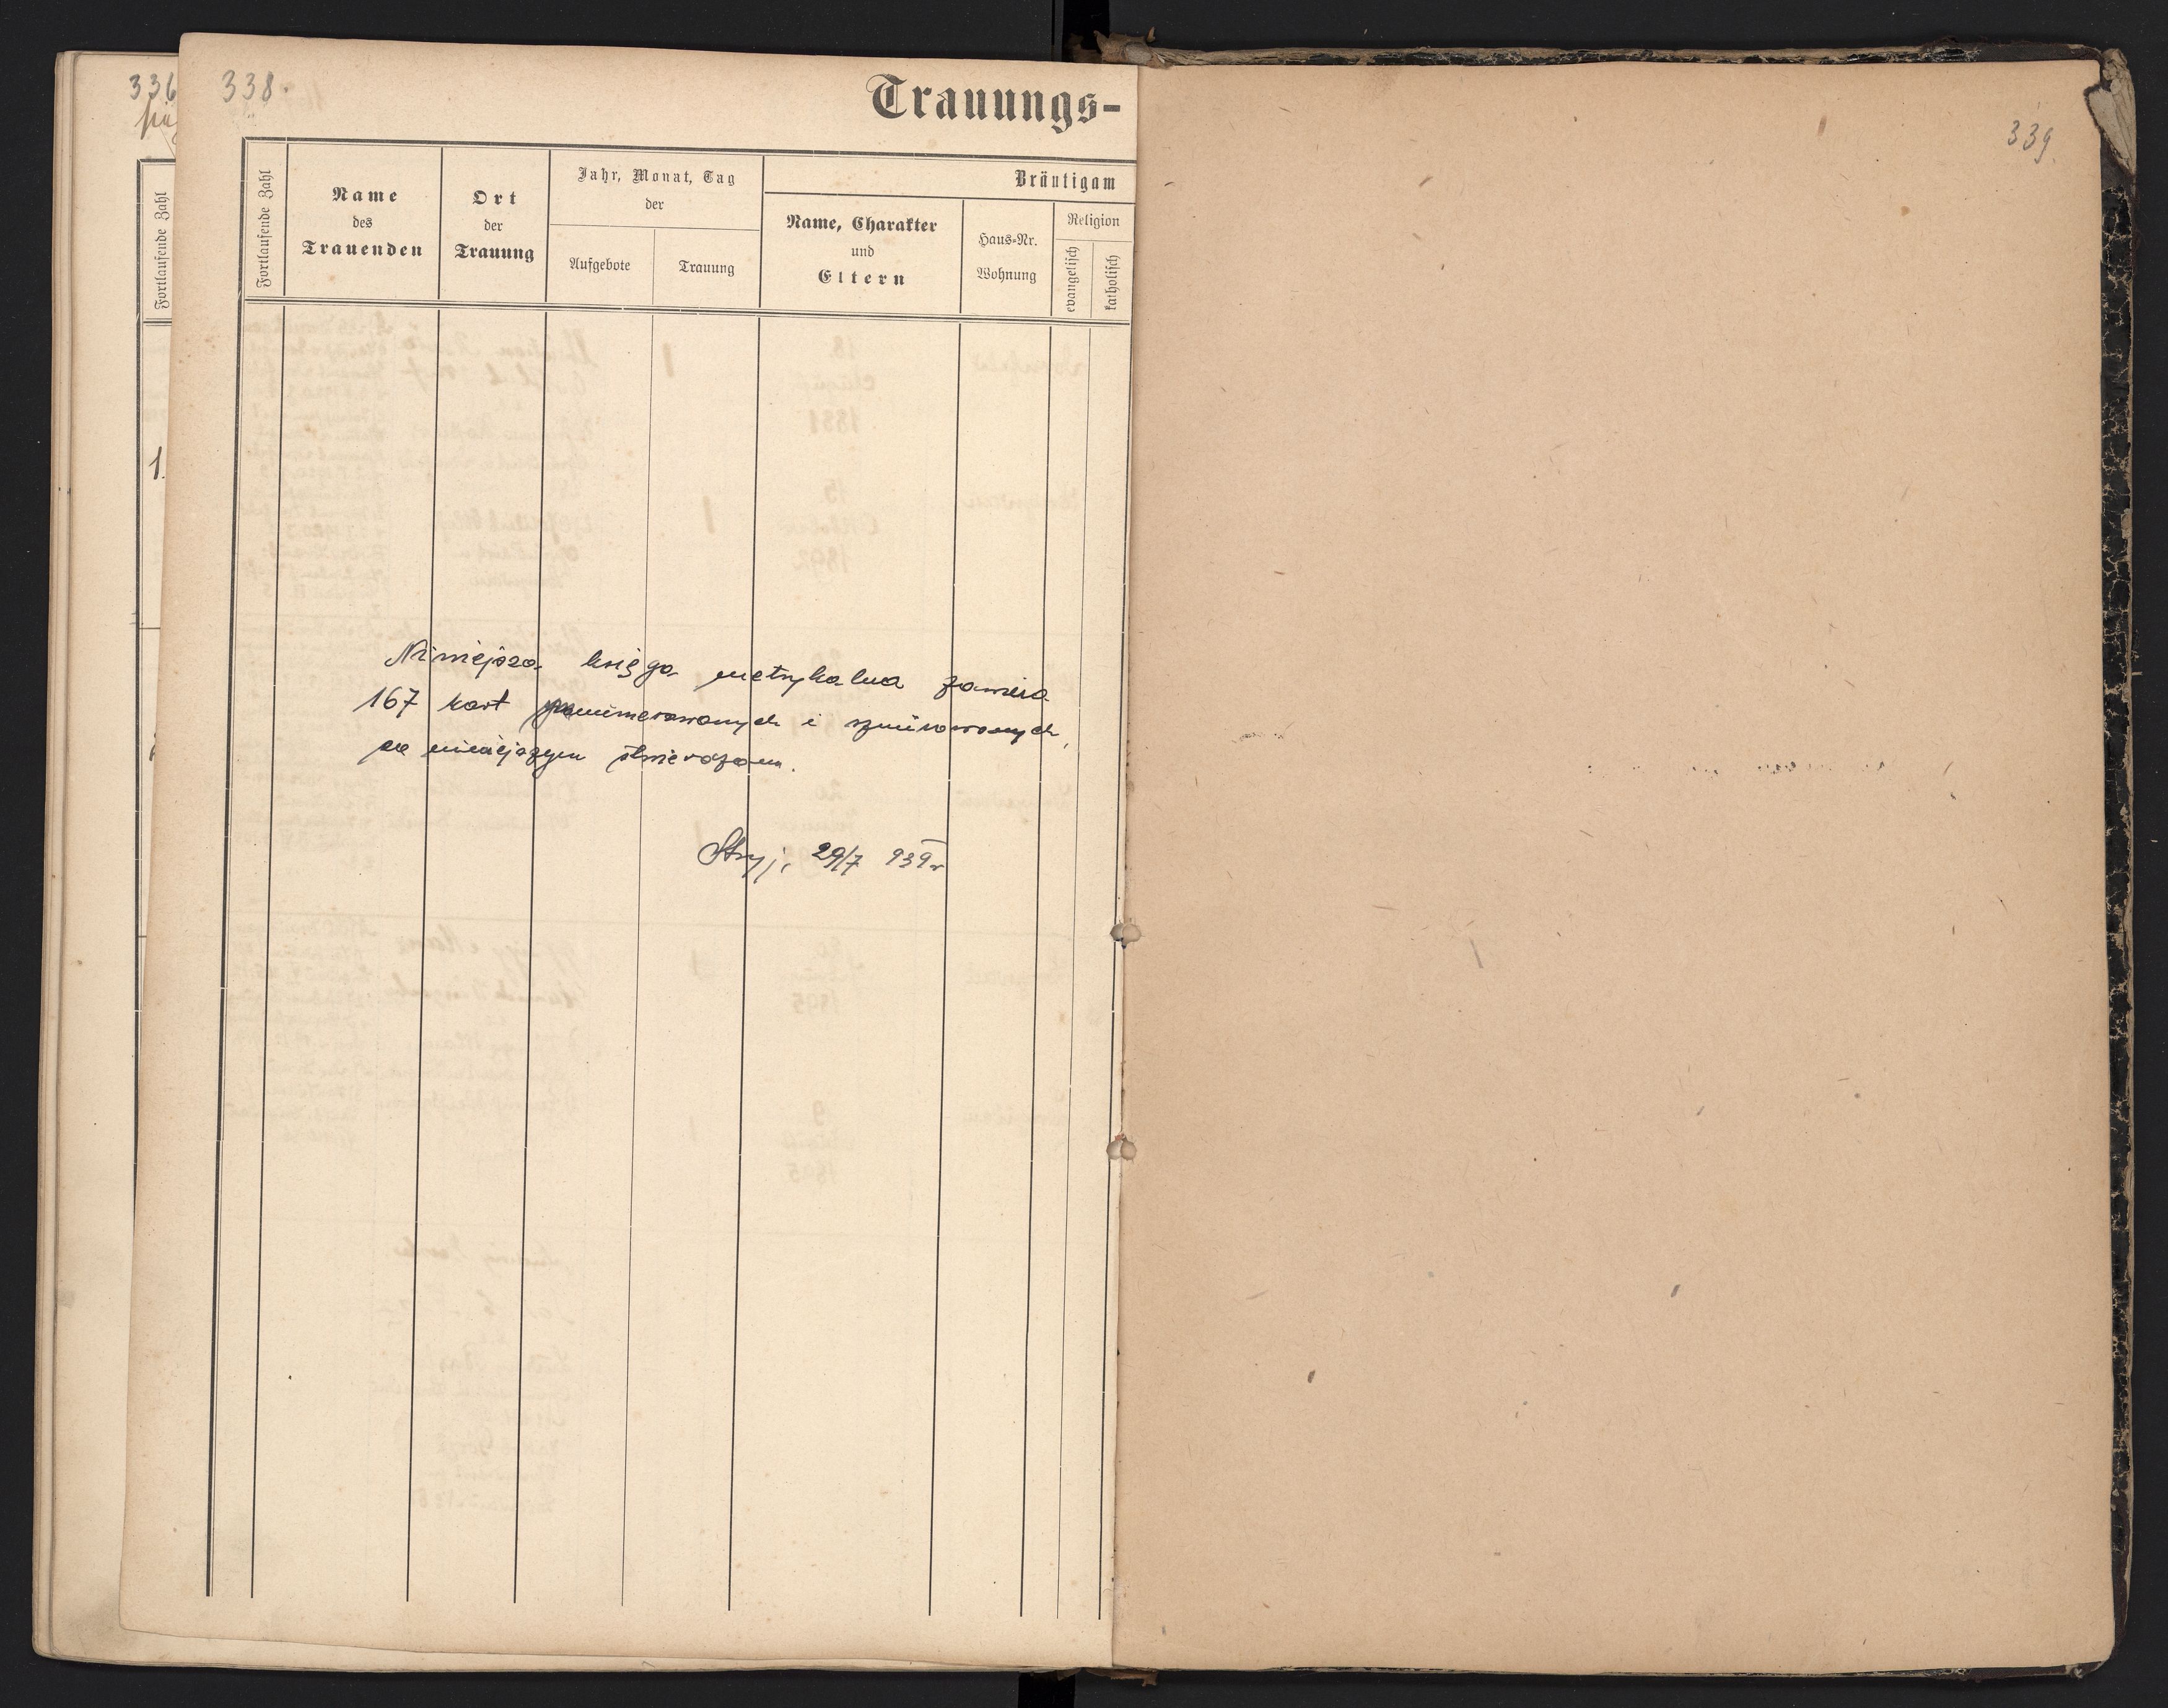 336
338.
339.
Trauungs-
Fortlaufende Zahl
Fortlaufende Zahl
Name
des
Trauenden
Ort
der
Trauung
Jahr, Monat, Tag
der
Aufgebote
Trauung
Bräutigam
Name, Charakter
und
Eltern
Haus-Nr.
Wohnung
Religion
evangelisch
katholisch
1.
Niniejsza księga metrykalna zawiera
167 kart ponumerowanych i sznurowanych,
co niniejszym stwierdzam.
Stryj, 29/7 939 r